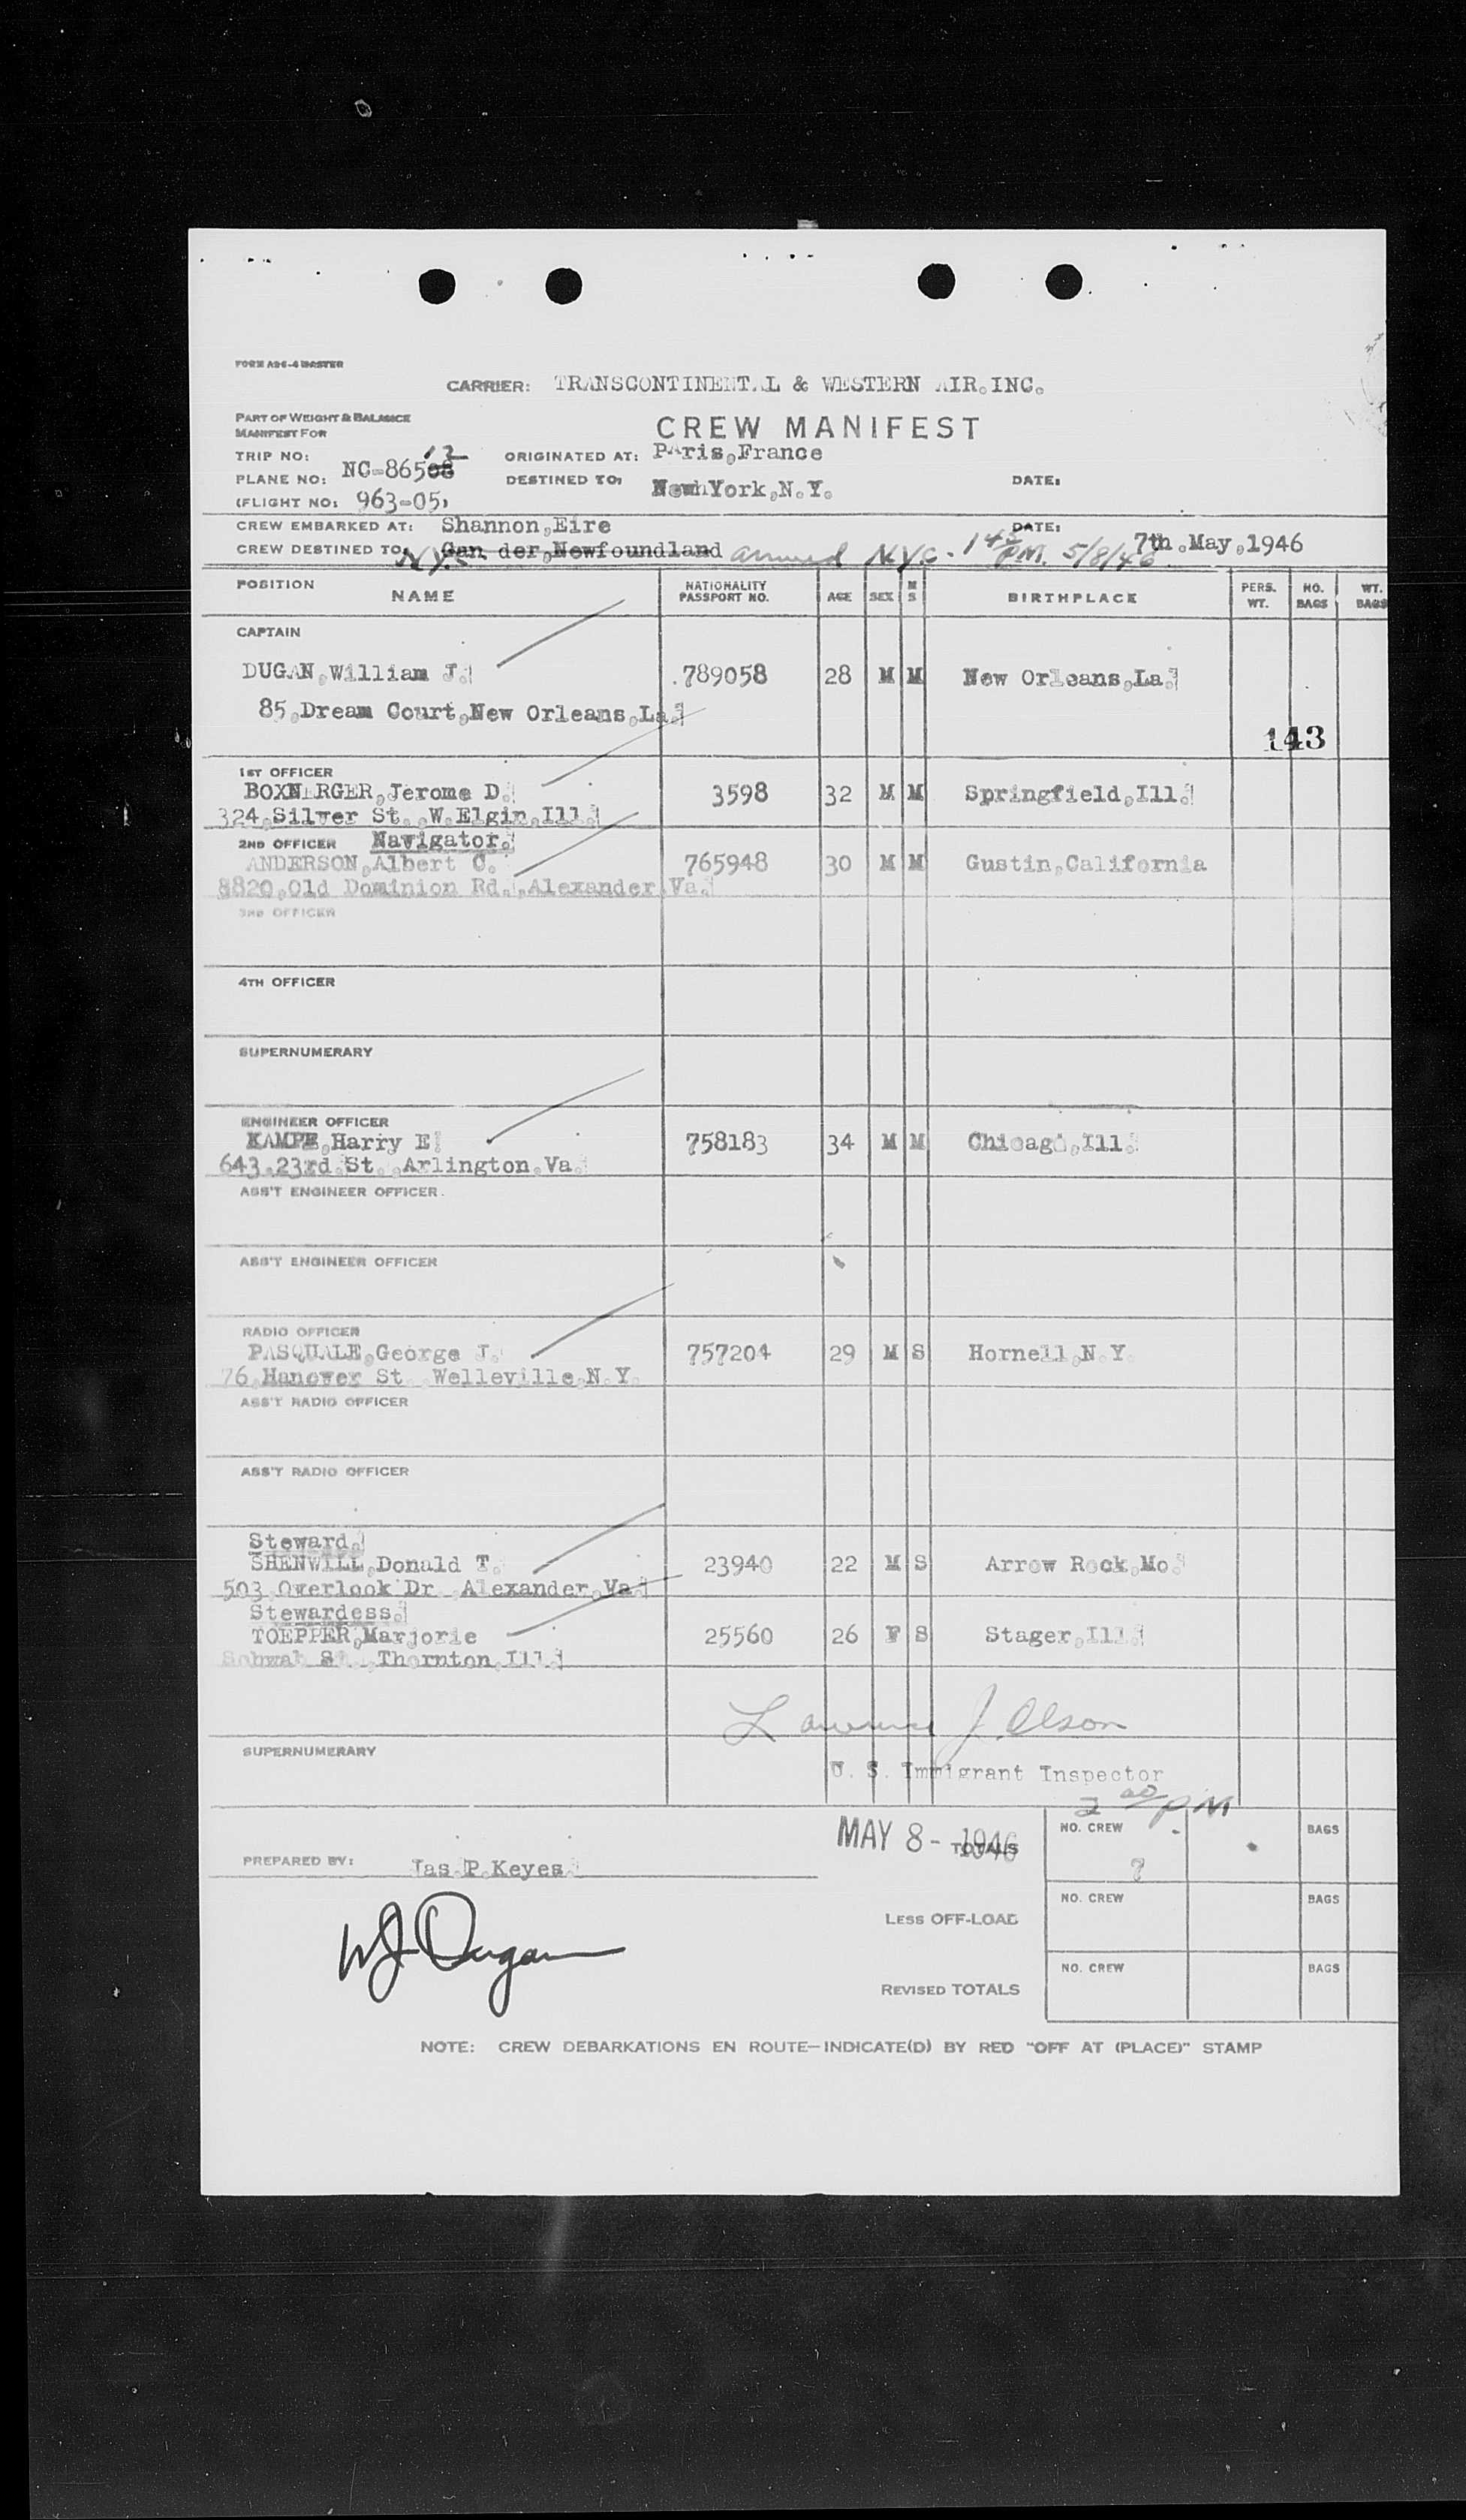 FORM A26-4 MASTER
CARRIER: TRANSCONTINENTAL & WESTERN AIR.INC.
PART OF WEIGHT & BALANCE
MANIFEST FOR
CREW MANIFEST
TRIP NO:
12
ORIGINATED AT: Paris,France
PLANE NO: NC-86508
DESTINED TO: New York,N.Y.
DATE:
(FLIGHT NO: 963-05)
CREW EMBARKED AT: Shannon,Eire
DATE:
CREW DESTINED TO: N.Y.C. Gander,Newfoundland arrived N.Y.C. 1 45 PM. 5/8/46 7th.May,1946
POSITION NAME NATIONALITY PASSPORT NO. AGE SEX M S BIRTHPLACE PERS. WT. NO. BAGS WT. BAGS
CAPTAIN
DUGAN,William J. 789058 28 M M New Orleans,La.
85,Dream Court,New Orleans,La.
143
1ST OFFICER
BOXNERGER,Jerome D. 3598 32 M M Springfield,Ill.
324,Silver St. W.Elgin,Ill.
2ND OFFICER Navigator.
ANDERSON,Albert C. 765948 30 M M Gustin,California
8820,Old Dominion Rd.,Alexander,Va.
3RD OFFICER
4TH OFFICER
SUPERNUMERARY
ENGINEER OFFICER
KAMPE,Harry E. 758183 34 M M Chicago,Ill.
643.23rd.St. Arlington.Va.
ASS'T ENGINEER OFFICER.
ASS'T ENGINEER OFFICER
RADIO OFFICER
PASQUALE,George J. 757204 29 M S Hornell,N.Y.
76,Hanover St. Welleville,N.Y.
ASS'T RADIO OFFICER
ASS'T RADIO OFFICER
Steward.
SHENWILL,Donald T. 23940 22 M S Arrow Rock,Mo.
503 Overlook Dr. Alexander,Va.
Stewardess.
TOEPPER,Marjorie 25560 26 F S Stager,Ill.
St.,Thornton,Ill.
Lawrence J. Olson
SUPERNUMERARY
U. S. Immigrant Inspector
2 00 PM
MAY 8 - 1946
TOTALS
NO. CREW
BAGS
PREPARED BY: Jas.P.Keyes
W J Dugan
LESS OFF-LOAD
NO. CREW
BAGS
REVISED TOTALS
NO. CREW
BAGS
NOTE: CREW DEBARKATIONS EN ROUTE—INDICATE(D) BY RED "OFF AT (PLACE)" STAMP